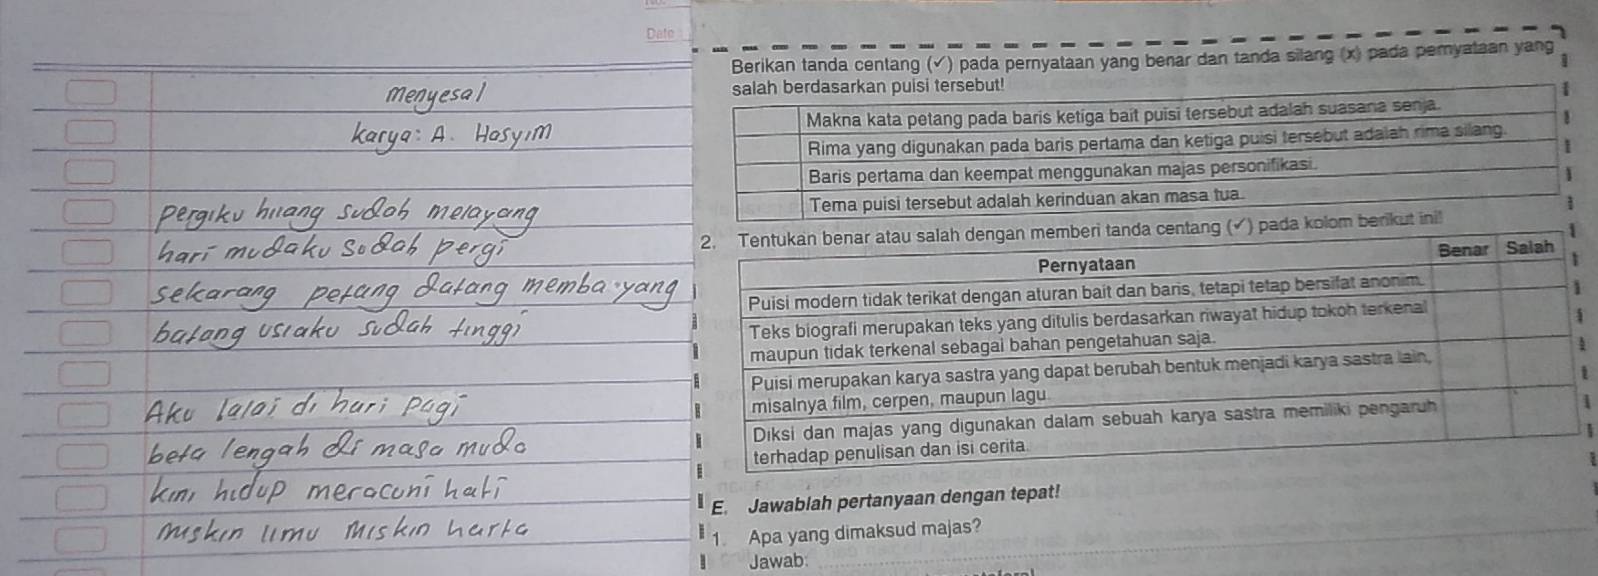 Date
menyesal
karya: A. Hasyim
pergiku hilang sudah melayang
hari mudaku sudah pergi
sekarang petang datang membayang
batang usiaku sudah tinggi
Aku lalai di hari pagi
beta lengah di masa muda
kini hidup meracuni hati
miskin ilmu miskin harta
Berikan tanda centang (✓) pada pernyataan yang benar dan tanda silang (x) pada pernyataan yang
salah berdasarkan puisi tersebut!
Makna kata petang pada baris ketiga bait puisi tersebut adalah suasana senja.
Rima yang digunakan pada baris pertama dan ketiga puisi tersebut adalah rima silang.
Baris pertama dan keempat menggunakan majas personifikasi.
Tema puisi tersebut adalah kerinduan akan masa tua.
2. Tentukan benar atau salah dengan memberi tanda centang (✓) pada kolom berikut ini!
Pernyataan Benar Salah
Puisi modern tidak terikat dengan aturan bait dan baris, tetapi tetap bersifat anonim.
Teks biografi merupakan teks yang ditulis berdasarkan riwayat hidup tokoh terkenal
maupun tidak terkenal sebagai bahan pengetahuan saja.
Puisi merupakan karya sastra yang dapat berubah bentuk menjadi karya sastra lain,
misalnya film, cerpen, maupun lagu.
Diksi dan majas yang digunakan dalam sebuah karya sastra memiliki pengaruh
terhadap penulisan dan isi cerita.
E. Jawablah pertanyaan dengan tepat!
1. Apa yang dimaksud majas?
Jawab: